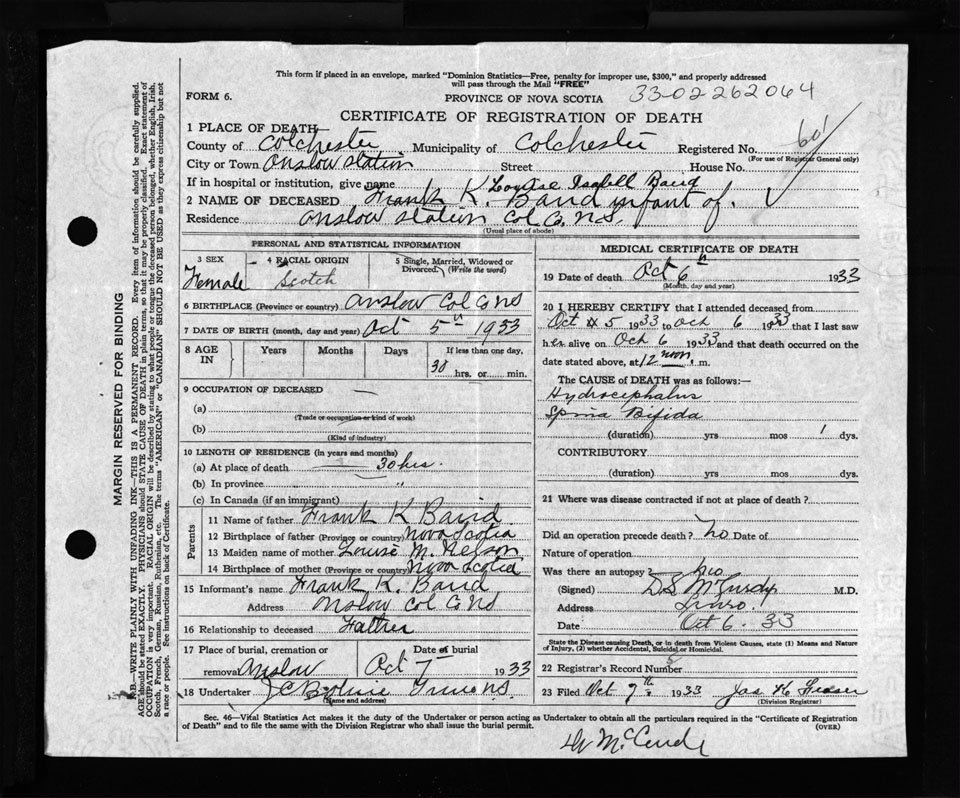 This form if placed in an envelope, marked "Dominion Statistics—Free, penalty for improper use, $300," and properly addressed
will pass through the Mail "FREE"
FORM 6.
PROVINCE OF NOVA SCOTIA
33-02-262064
CERTIFICATE OF REGISTRATION OF DEATH
1 PLACE OF DEATH
County of Colchester Municipality of Colchester Registered No. 601
(For use of Registrar General only)
City or Town Onslow Station Street House No.
If in hospital or institution, give name Louise Isabell Baird
2 NAME OF DECEASED Frank K. Baird infant of.
Residence Onslow Station Col Co. NS.
(Usual place of abode)
PERSONAL AND STATISTICAL INFORMATION
3 SEX
Female
4 RACIAL ORIGIN
Scotch
5 Single, Married, Widowed or
Divorced. (Write the word)
6 BIRTHPLACE (Province or country) Onslow Col Co NS
7 DATE OF BIRTH (month, day and year) Oct 5th 1933
8 AGE
IN
Years Months Days If less than one day,
30 hrs. or min.
9 OCCUPATION OF DECEASED
(a)
(Trade or occupation or kind of work)
(b)
(Kind of industry)
10 LENGTH OF RESIDENCE (in years and months)
(a) At place of death 30 hrs.
(b) In province "
(c) In Canada (if an immigrant)
Parents
11 Name of father Frank K Baird
12 Birthplace of father (Province or country) Nova Scotia
13 Maiden name of mother Louise M. Nelson
14 Birthplace of mother (Province or country) Nova Scotia
15 Informant's name Frank K. Baird
Address Onslow Col Co NS
16 Relationship to deceased Father
17 Place of burial, cremation or
removal Onslow
Date of burial
Oct 7 1933
18 Undertaker J C Truro NS.
(Name and address)
MEDICAL CERTIFICATE OF DEATH
19 Date of death Oct 6th 1933
(Month, day and year)
20 I HEREBY CERTIFY that I attended deceased from
Oct 5 1933 to Oct 6 1933 that I last saw
her alive on Oct 6 1933 and that death occurred on the
date stated above, at 12 noon. m.
The CAUSE of DEATH was as follows:—
Hydrocephalus
Spina Bifida
(duration) yrs mos 1 dys.
CONTRIBUTORY
(duration) yrs mos dys.
21 Where was disease contracted if not at place of death?
Did an operation precede death? No Date of
Nature of operation
Was there an autopsy? No
(Signed) D.S. McCurdy M.D.
Address Truro.
Date Oct 6. 33
State the Disease causing Death, or in death from Violent Causes, state (1) Means and Nature
of Injury, (2) whether Accidental, Suicidal or Homicidal.
22 Registrar's Record Number 5
23 Filed Oct 7th 1933 Jas H Fraser
(Division Registrar)
Sec. 46—Vital Statistics Act makes it the duty of the Undertaker or person acting as Undertaker to obtain all the particulars required in the "Certificate of Registration
of Death" and to file the same with the Division Registrar who shall issue the burial permit.
(OVER)
MARGIN RESERVED FOR BINDING
N.B.—WRITE PLAINLY WITH UNFADING INK—THIS IS A PERMANENT RECORD. Every item of information should be carefully supplied.
AGE should be stated EXACTLY. PHYSICIANS should STATE CAUSE OF DEATH in plain terms, so that it may be properly classified. Exact statement of
OCCUPATION is very important. RACIAL ORIGIN will be described by stating to what people or tongue the deceased person belonged, whether English, Irish,
Scotch, French, German, Russian, Ruthenian, etc. The terms "AMERICAN" or "CANADIAN" SHOULD NOT BE USED as they express citizenship but not
a race or people. See instructions on back of Certificate.